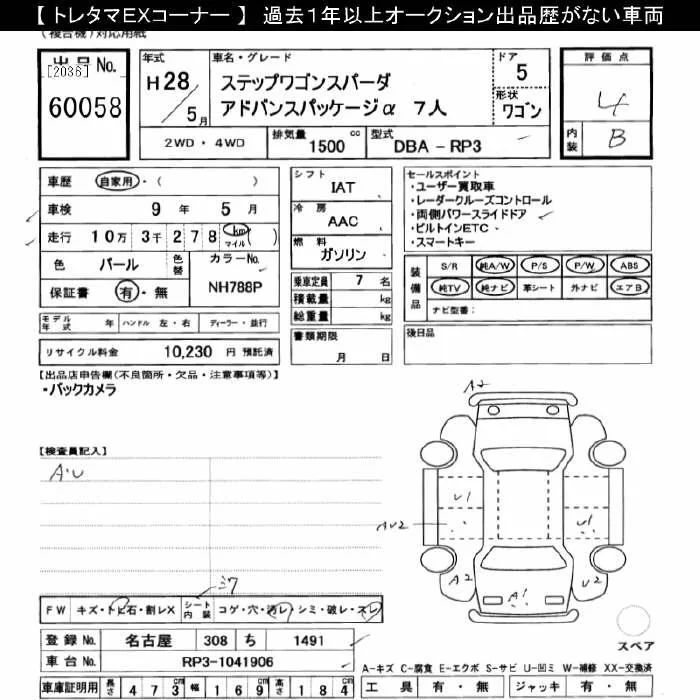 【 トレタマEXコーナー 】 過去1年以上オークション出品歴がない車両
(複合機)対応用紙
出品No.
[2036]
60058
年式
H28
/5月
車名・グレード
ステップワゴンスパーダ
アドバンスパッケージα 7人
ドア
5
形状
ワゴン
評価点
4
内装
B
2WD ・ 4WD
排気量
1500 cc
型式
DBA - RP3
車歴 自家用・( )
車検 9 年 5 月
走行 10万 3千 2 7 8 km マイル ( )
色 パール 色替 カラーNo.
保証書 有・無 NH788P
モデル年式 年 ハンドル 左・右 ディーラー・並行
リサイクル料金 10,230 円 預託済
シフト
IAT
冷房
AAC
燃料
ガソリン
乗車定員 7 名
積載量 kg
総重量 kg
書類期限
月 日
セールスポイント
・ユーザー買取車
・レーダークルーズコントロール
・両側パワースライドドア
・ビルトインETC
・スマートキー
装備品
S/R 純A/W P/S P/W ABS
純TV 純ナビ 革シート 外ナビ エアB
ナビ型番:
後日品
【出品店申告欄(不良箇所・欠品・注意事項等)】
・バックカメラ
【検査員記入】
A・U
A2
U1
AU2
U1
A2
A1
U2
FW キズ・トビ石・割レX シート内装 コゲ・穴・汚レ・シミ・破レ・スレ
登録No. 名古屋 308 ち 1491
車台No. RP3-1041906
車庫証明用 長さ 4 7 3 cm 幅 1 6 9 cm 高さ 1 8 4 cm
スペア
A-キズ C-腐食 E-エクボ S-サビ U-凹ミ W-補修 XX-交換済
工具 有・無 ジャッキ 有・無